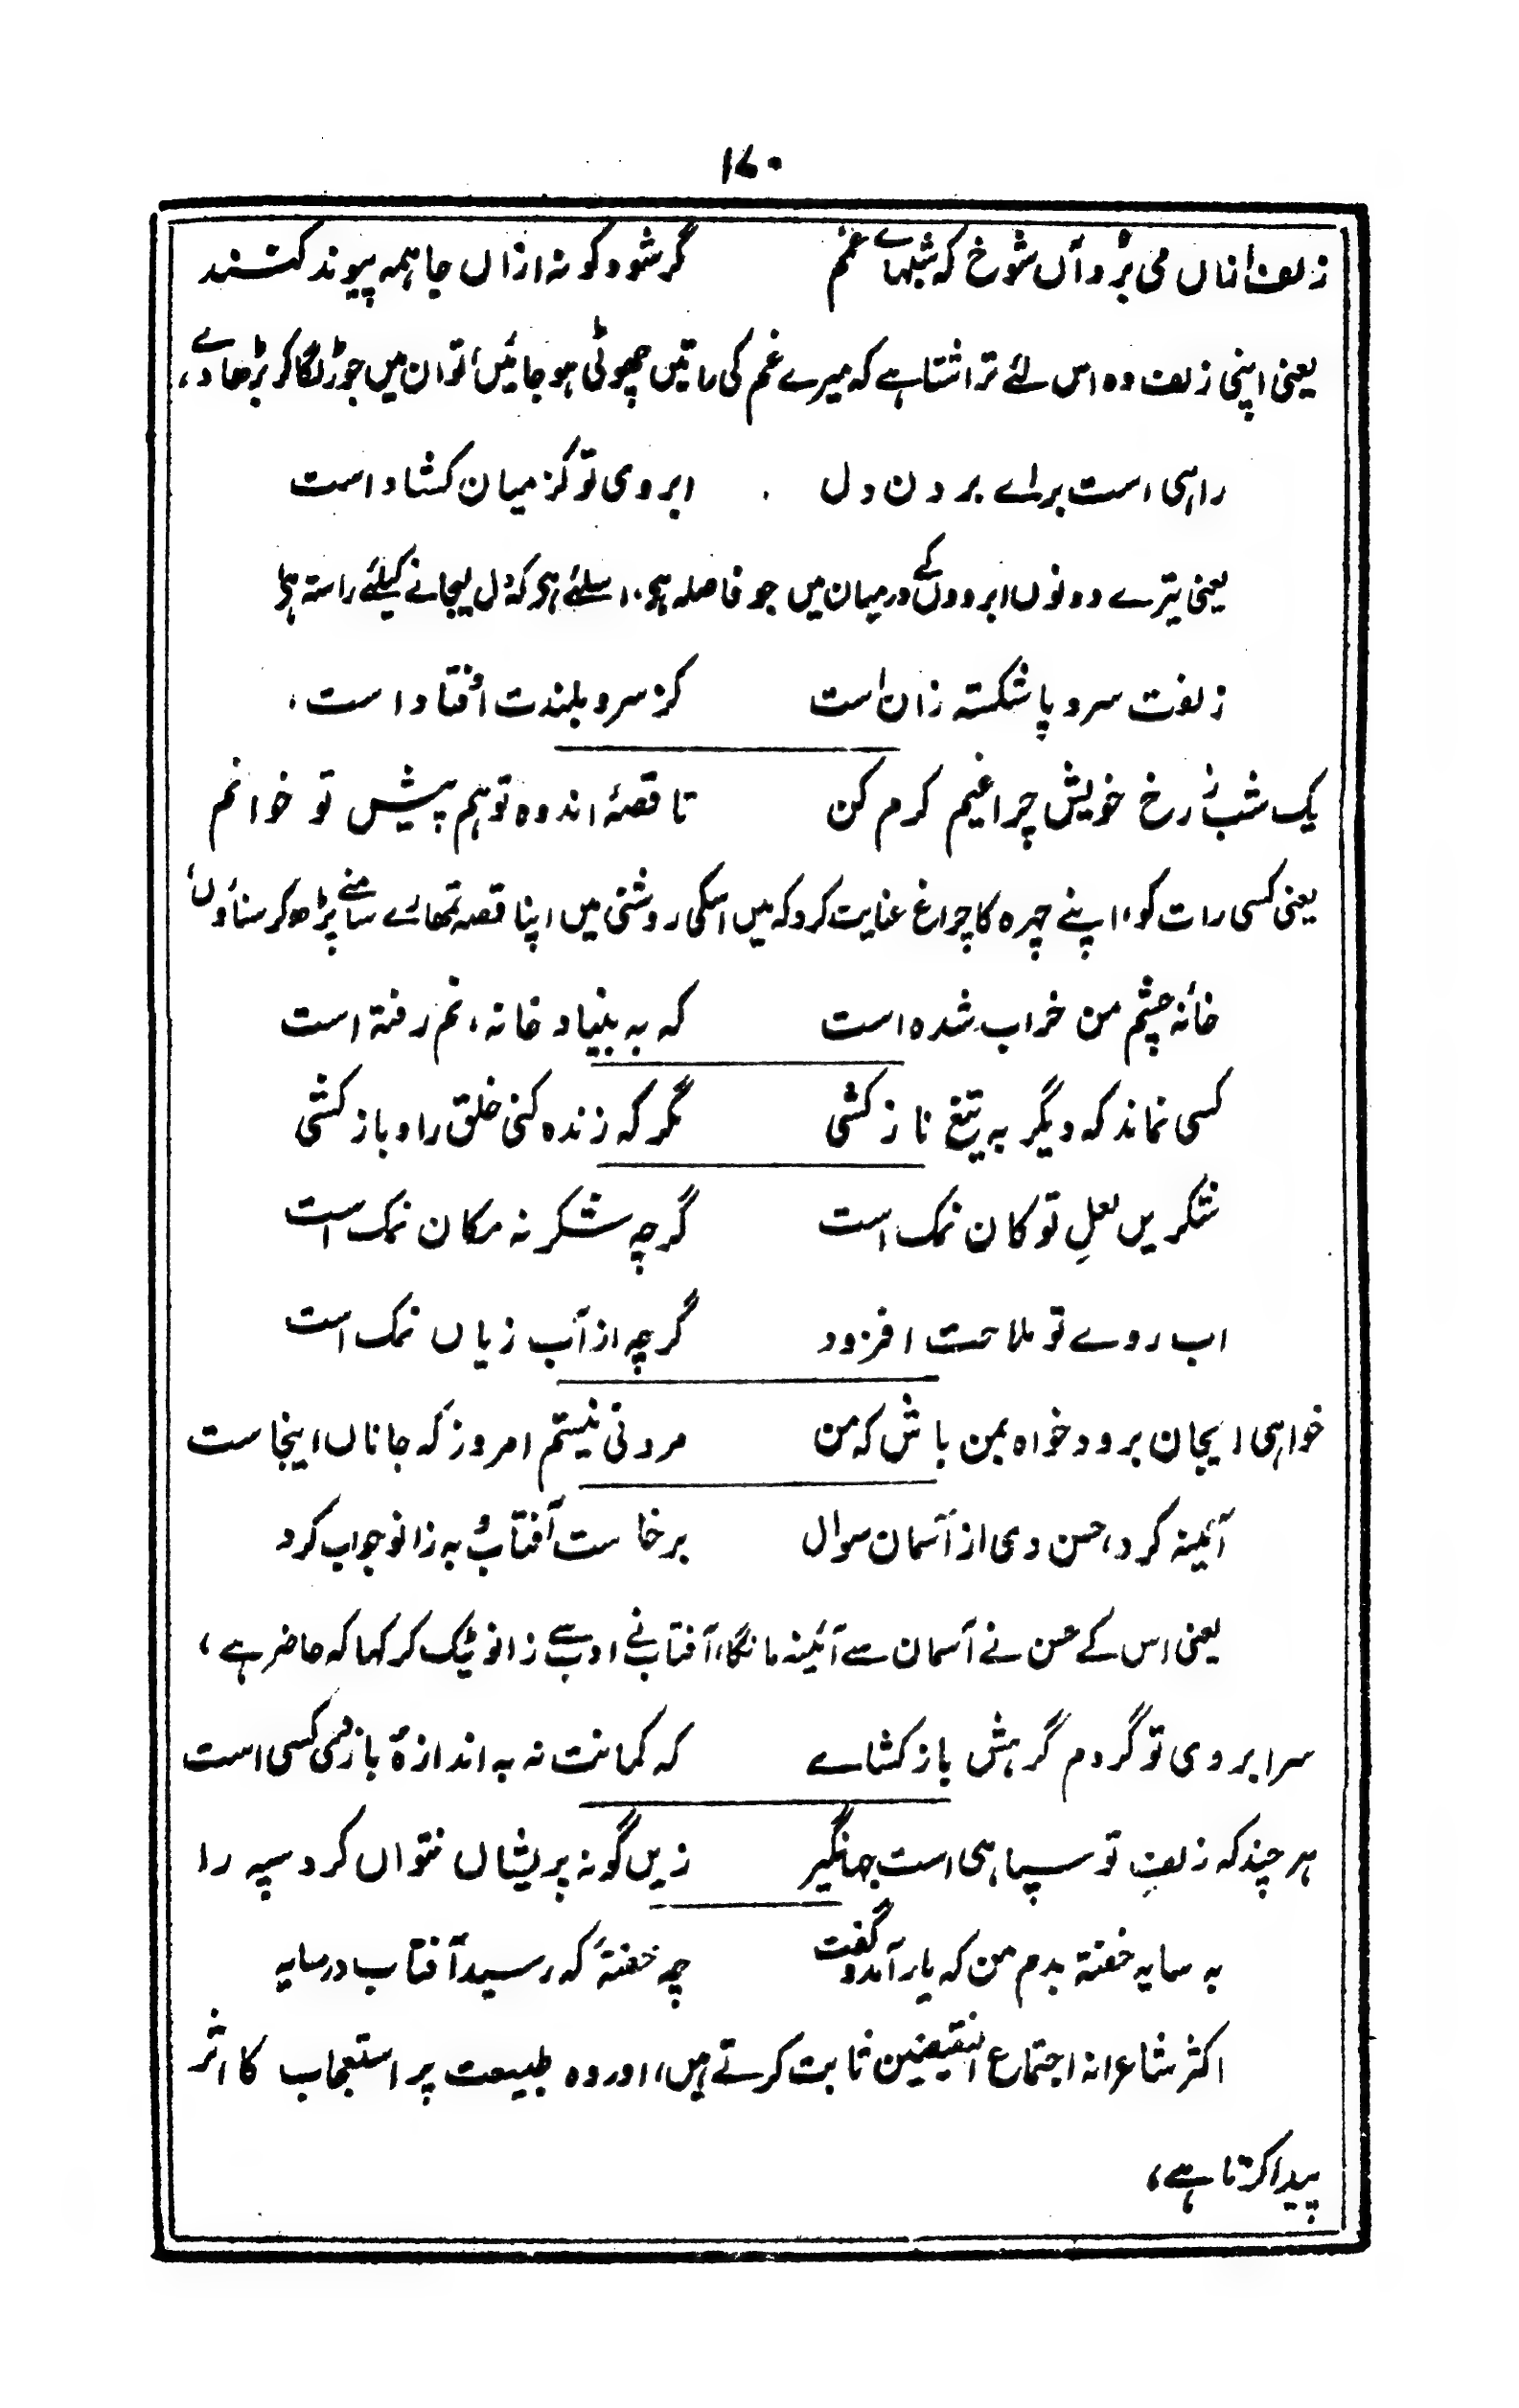 ۱۷۰
زلف ازاں می بُرد آں شوخ کہ شبہاے غم گر شود کوتہ ازاں جا ہمہ پیوند کنند
یعنی اپنی زلف وہ اس لئے تراشتا ہے کہ میرے غم کی راتیں چھوٹی ہو جائیں، تو ان میں جوڑ لگا کر بڑھا دے،
راہی است براے بردن دل ابروی تو کز میان کشاد است
یعنی تیرے دونوں ابرووں کے درمیان میں جو فاصلہ ہی، اسلئے ہی کہ دل لیجانے کیلئے راستہ ہی
زلفت سر و پا شکستہ زان است کز سرو بلندت اُفتاد است،
یک شب ز رخ خویش چراغیم کرم کن تا قصۂ اندوہ تو ہم پیش تو خوانم
یعنی کسی رات کو، اپنے چہرہ کا چراغ عنایت کرو کہ میں اسکی روشنی میں اپنا قصہ تمھارے سامنے پڑھ کر سناؤں،
خانہ چشم من خراب شدہ است کہ بہ بنیاد خانہ، نم رفتہ است
کسی نماند کہ دیگر بہ تیغ ناز کشی مگر کہ زندہ کنی خلق را و باز کشی
شکریں لعلِ تو کان نمک است گرچہ شکر نہ مکان نمک است
اب روے تو ملاحت افزود گرچہ از آب زیاں نمک است
خواہی ایجان برو و خواہ بمن باش کہ من مردنی نیستم امروز کہ جاناں اینجاست
آئینہ کرد، حسن وی از آسمان سوال برخاست آفتاب و بہ زانو جواب کرد
یعنی اس کے حسن نے آسمان سے آئینہ مانگا، آفتاب نے ادب سے زانو ٹیک کر کہا کہ حاضر ہے،
سر ابروی تو گردم گرہش باز کشاے کہ کمانت نہ بہ اندازۂ بازوی کسی است
ہر چند کہ زلفِ تو سپاہی است جہانگیر زیں گونہ پریشاں نتواں کرد سپہ را
بہ سایہ خفتہ بدم من کہ یار آمد و گفت چہ خفتۂ کہ رسید آفتاب در سایہ
اکثر شاعرانہ اجتماع النقیضین ثابت کرتے ہیں، اور وہ طبیعت پر استعجاب کا اثر
پیدا کرتا ہے،